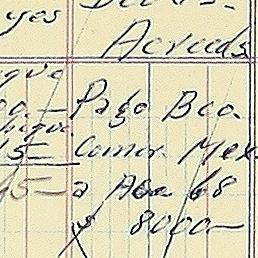 yes
Acreeds.
que
00.— Pago Bco.
15— Comer. Mex.
45— a Abo 68
y 8000—